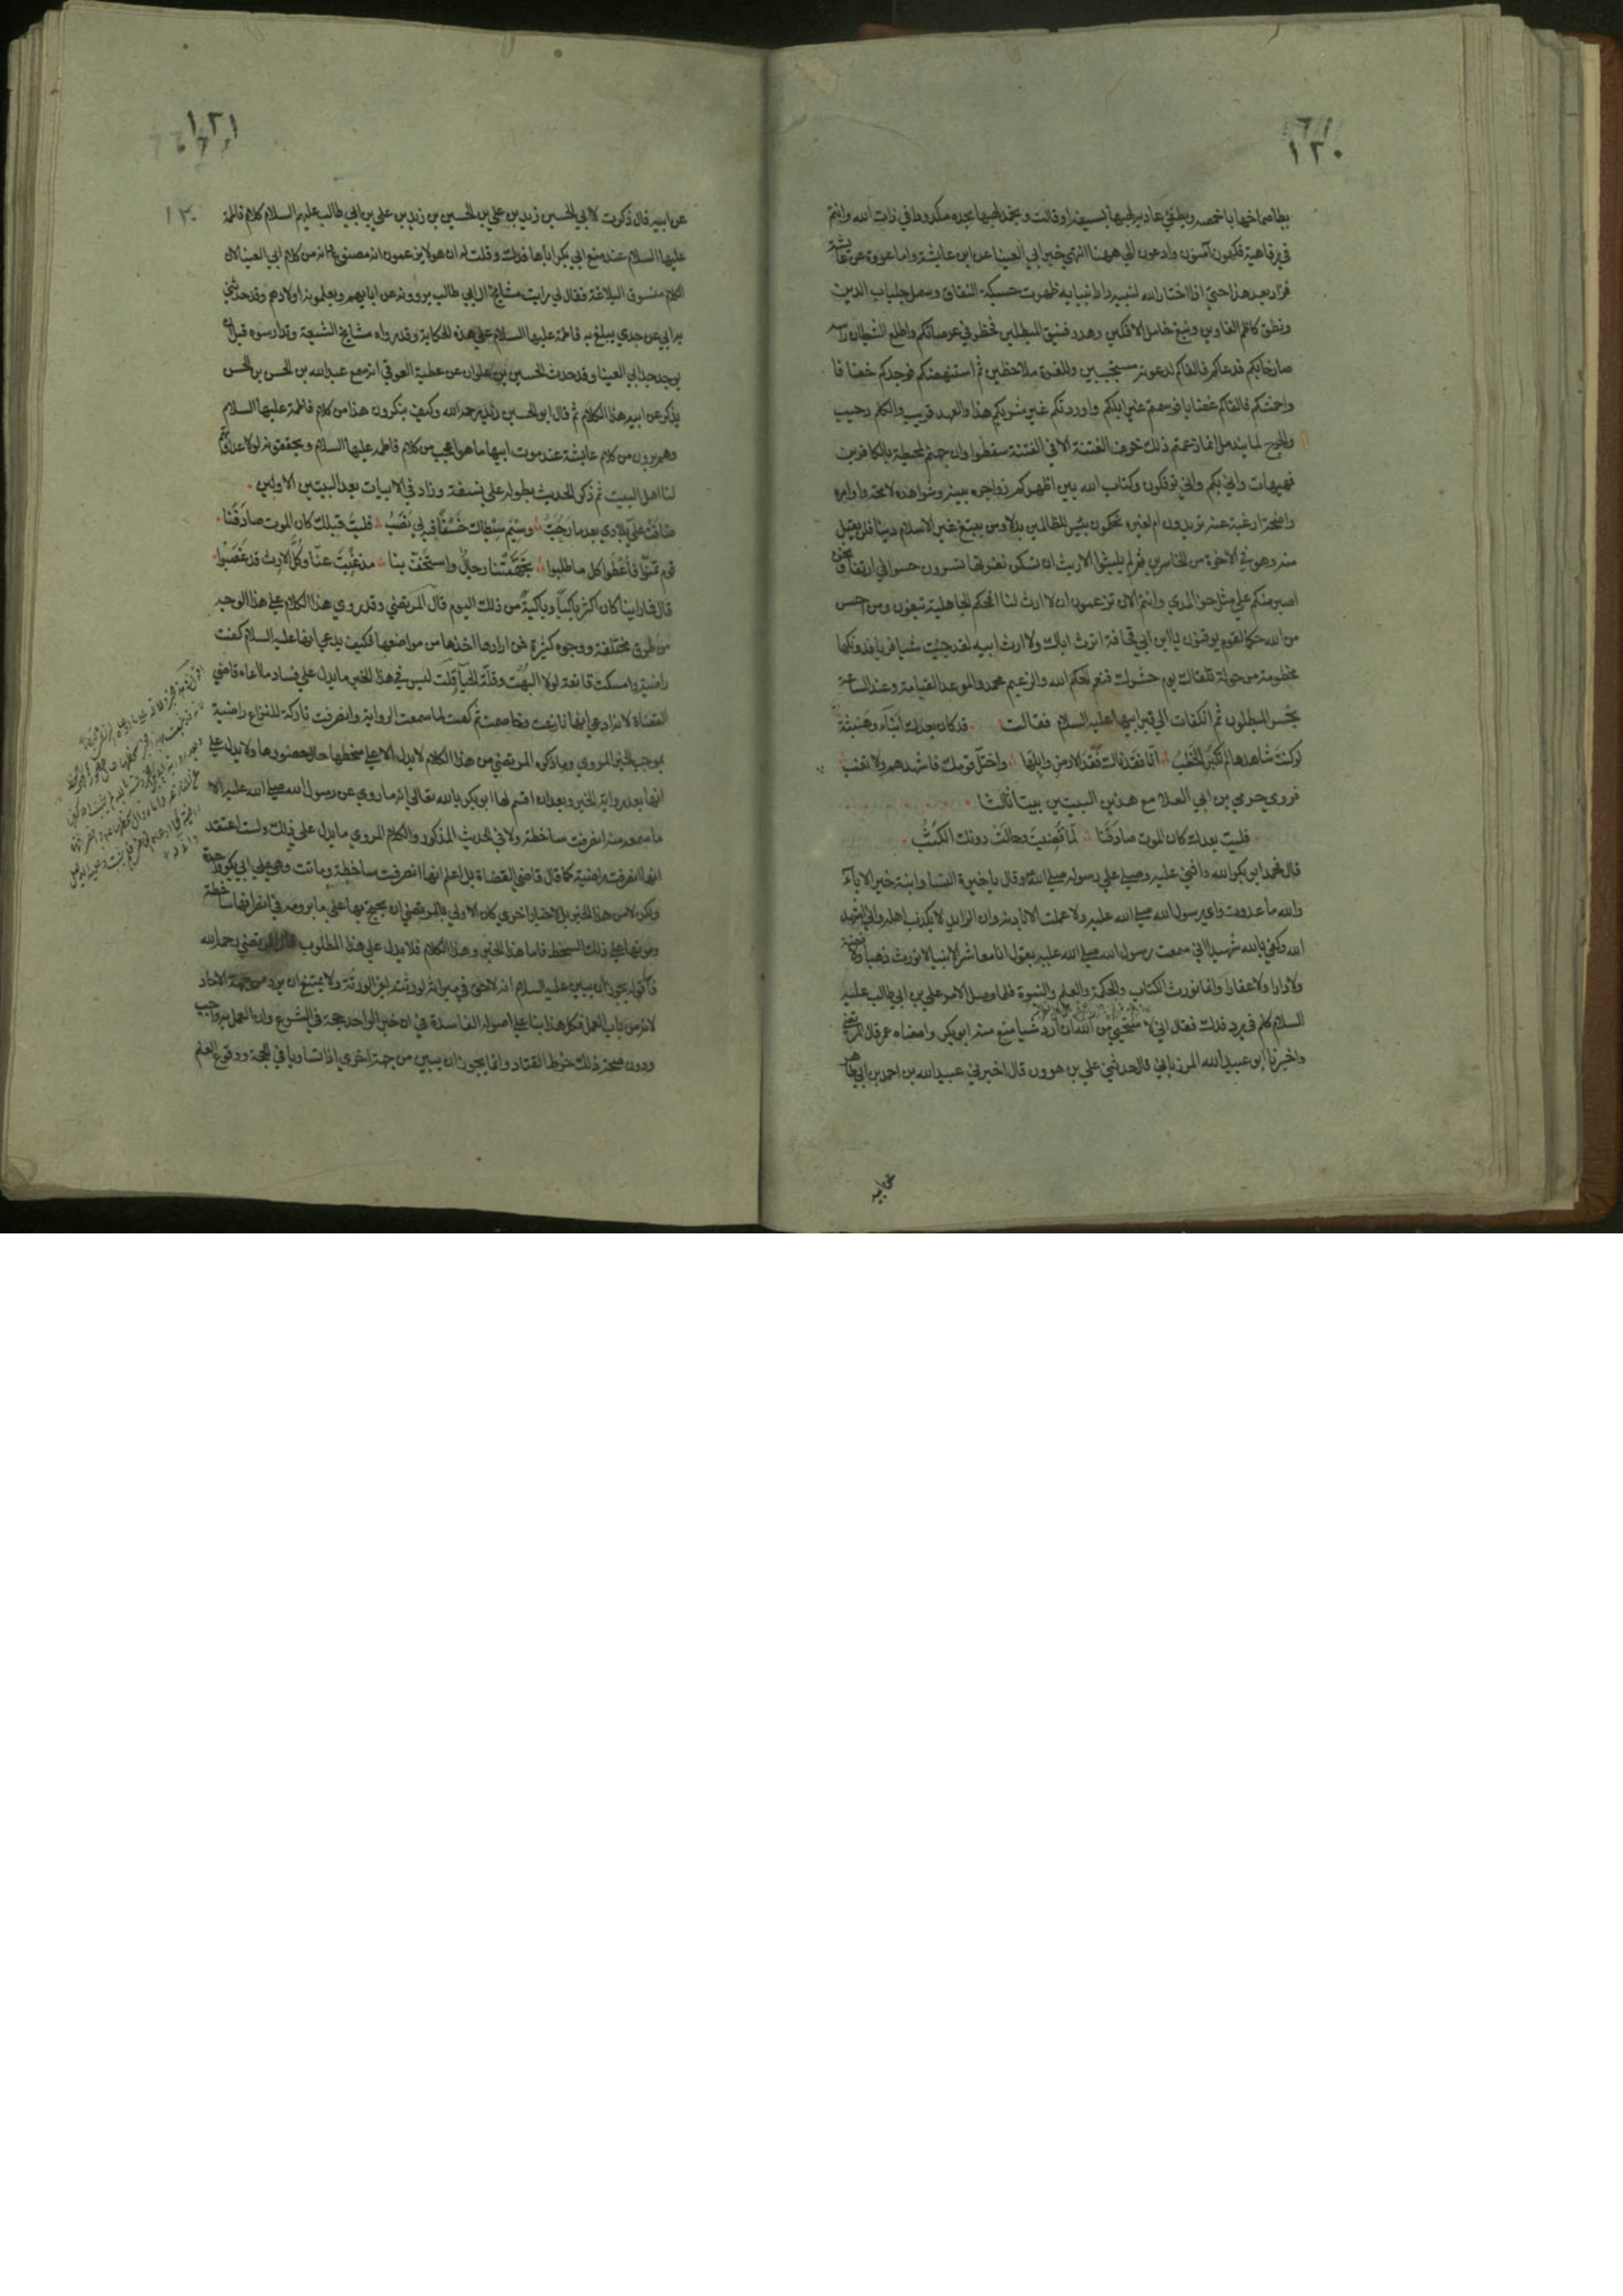 ١٢٠
يطا صماخها باخمصه ويطفئ عادية لهبها بسيفه او قالت ويخمد لهبها بحده مكدودا في ذات الله وانتم
في رفاهية فكهون آمنون وادعون الي ههنا انتهي خبر ابي العينا عن ابن عايشة واما عروة عن عايشة
فزاد بعد هذا حتي اذا اختار الله لنبيه دار انبيايه ظهرت حسيكة النفاق وسمل جلباب الدين
ونطق كاظم الغاوين ونبغ خامل الافكين وهدر فنيق المبطلين فخطر في عرصاتكم واطلع الشيطان راسه
صارخا بكم فدعاكم فالفاكم لدعوته مستجيبين وللغرة ملاحظين ثم استنهضكم فوجدكم خفافا
واحمشكم فالفاكم غضابا فوسمتم غير ابلكم واوردتم غير شربكم هذا والعهد قريب والكلم رحيب
والجرح لما يندمل انما زعمتم ذلك خوف الفتنة الا في الفتنة سقطوا وان جهنم لمحيطة بالكافرين
فهيهات واني بكم واني توفكون وكتاب الله بين اظهركم زواجره بينه وشواهده لايحه واوامره
واضحة ارغبة عنه تريدون ام لغيره تحكمون بئس للظالمين بدلا ومن يبتغ غير الاسلام دينا فلن يقبل
منه وهو في الاخرة من الخاسرين ثم لم يلبثوا الا ريث ان تسكن نفرتها تسرون حسوا في ارتغا ونحن
نصبر منكم علي مثل حز المدي وانتم الان تزعمون ان لا ارث لنا افحكم الجاهلية تبغون ومن احسن
من الله حكما لقوم يوقنون يا ابن ابي قحافة اترث اباك ولا ارث ابيه لقد جيت شيا فريا فدونكها
مخطومة مرحولة تلقاك يوم حشرك فنعم الحكم الله والزعيم محمد والموعد القيامة وعند الساعة
يخسر المبطلون ثم انكفات الي قبر ابيها عليه السلام فقالت قد كان بعدك انباء وهنبثة
لو كنت شاهدها لم تكثر الخطب انا فقدناك فقد الارض وابلها واختل قومك فاشهدهم ولا تغب
فروي حرمي بن ابي العلا مع هذين البيتين بيتا ثالثا
فليت بعدك كان الموت صادفنا لما قضيت وحالت دونك الكثب
قال فحمد ابو بكر الله واثني عليه وصلي علي رسوله صلي الله وقال يا خيرة النسا وابنة خير الاباء
والله ما عدوت راي رسول الله صلي الله عليه ولا عملت الا باذنه وان الرايد لا يكذب اهله واني اشهد
الله وكفي بالله شهيدا اني سمعت رسول الله صلي الله عليه يقول انا معاشر الانبيا لا نورث ذهبا ولا فضة
ولا دارا ولا عقارا وانما نورث الكتاب والحكمة والعلم والنبوة فلما وصل الامر علي بن ابي طالب عليه
السلام كلم في رد فدك فقال اني لا ستحيي من الله ان ارد شيا منع منه ابو بكر وامضاه عمر قال المرتضي
واخبرنا ابو عبيد الله المرزباني قال حدثني علي بن هرون قال اخبرني عبيد الله بن احمد بن ابي طاهر
عن ابيه
١٢١
١٢٠
عن ابيه قال ذكرت لابي الحسين زيد بن علي بن الحسين بن زيد بن علي بن ابي طالب عليهم السلام كلام فاطمة
عليها السلام عند منع ابي بكر اياها فدك وقلت له ان هولا يزعمون انه مصنوع وانه من كلام ابي العينا لان
الكلام منسوق البلاغة فقال لي رايت مشايخ ال ابي طالب يروونه عن ابايهم ويعلمونه اولادهم وقد حدثني
به ابي عن جدي يبلغ به فاطمة عليها السلام علي هذه الحكاية وقد رواه مشايخ الشيعة وتدارسوه قبل ان
يوجد جد ابي العينا وقد حدث الحسين بن علوان عن عطية العوفي انه سمع عبد الله بن الحسن بن الحسن
يذكر عن ابيه هذا الكلام ثم قال ابو الحسين زيد رحمه الله وكيف ينكرون هذا من كلام فاطمة عليها السلام
وهم يروون من كلام عايشة عند موت ابيها ما هو اعجب من كلام فاطمة عليها السلام ويحققونه لولا عداوتهم
لنا اهل البيت ثم ذكر الحديث بطوله علي نسقه وزاد في الابيات بعد البيتين الاولين
ضاقت علي بلادي بعد ما رحبت وسيم سبطاك خسفا فيه لي نصب فليت قبلك كان الموت صادفنا
قوم تمنوا فاعطوا كل ما طلبوا تجهمتنا رجال واستخف بنا مذ غبت عنا وكل الارث قد غصبوا
قال فما راينا كان اكثر باكيا وباكية من ذلك اليوم قال المرتضي وقد روي هذا الكلام علي هذا الوجه
من طرق مختلفة ووجوه كثيرة فمن ارادها اخذها من مواضعها فكيف يدعي انها عليه السلام كفت
راضية وامسكت قانعة لولا البهت وقلة الحياء قلت ليس في هذا الخبر ما يدل علي فساد ما ادعاه قاضي
القضاة لانه ادعي انها نازعت وخاصمت ثم كفت لما سمعت الرواية وانصرفت تاركة للنزاع راضية
بموجب الخبر المروي وما ذكره المرتضي من هذا الكلام لا يدل الا علي سخطها حال حضورها ولا يدل علي
انها بعد رواية الخبر وبعد ان اقسم لها ابو بكر بالله تعالي انه ما روي عن رسول الله صلي الله عليه الا
ما سمعه منه انصرفت ساخطة ولا في الحديث المذكور والكلام المروي ما يدل علي ذلك ولست اعتقد
انها انصرفت راضية كما قال قاضي القضاة بل اعلم انها انصرفت ساخطة وماتت وهي علي ابي بكر واجدة
ولكن لا من هذا الخبر بل من اخبار اخري كان الاولي بالمرتضي ان يحتج بها علي ما يرومه في انصرافها ساخطة
وموتها علي ذلك السخط فاما هذا الخبر وهذا الكلام فلا يدل علي هذا المطلوب قال المرتضي رحمه الله
فاما قوله يجوز ان يبين عليه السلام انه لا حق في ميراثه لورثته لغير الورثة ولا يمتنع ان يرد من جهة الاحاد
لانه من باب العمل فكل هذا بنا علي اصوله الفاسدة في ان خبر الواحد حجة في الشرع وان العمل به واجب
ودون صحة ذلك خرط القتاد وانما يجوز ان يبين من جهة اخري اذا تساويا في الحجة ووقوع العلم